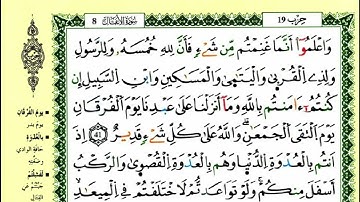 حزب 19
سورة الأنفال 8
وَاعْلَمُوٓا۟ أَنَّمَا غَنِمْتُم مِّن شَىْءٍ فَأَنَّ لِلَّهِ خُمُسَهُۥ وَلِلرَّسُولِ
وَلِذِى الْقُرْبَىٰ وَالْيَتَـٰمَىٰ وَالْمَسَـٰكِينِ وَابْنِ السَّبِيلِ إِن
كُنتُمُۥٓ ءَامَنتُم بِاللَّهِ وَمَآ أَنزَلْنَا عَلَىٰ عَبْدِنَا يَوْمَ الْفُرْقَانِ
يَوْمَ الْتَقَى الْجَمْعَـٰنِ وَاللَّهُ عَلَىٰ كُلِّ شَىْءٍ قَدِيرٌ ٤١ إِذْ
أَنتُم بِالْعُدْوَةِ الدُّنْيَا وَهُم بِالْعُدْوَةِ الْقُصْوَىٰ وَالرَّكْبُ
أَسْفَلَ مِنكُمْ وَلَوْ تَوَاعَدتُّمْ لَاخْتَلَفْتُمْ فِى الْمِيعَـٰدِ
يَوْمَ الْفُرْقَانِ
يوم بدر
بِالْعُدْوَةِ
حافة الوادي
وضفته